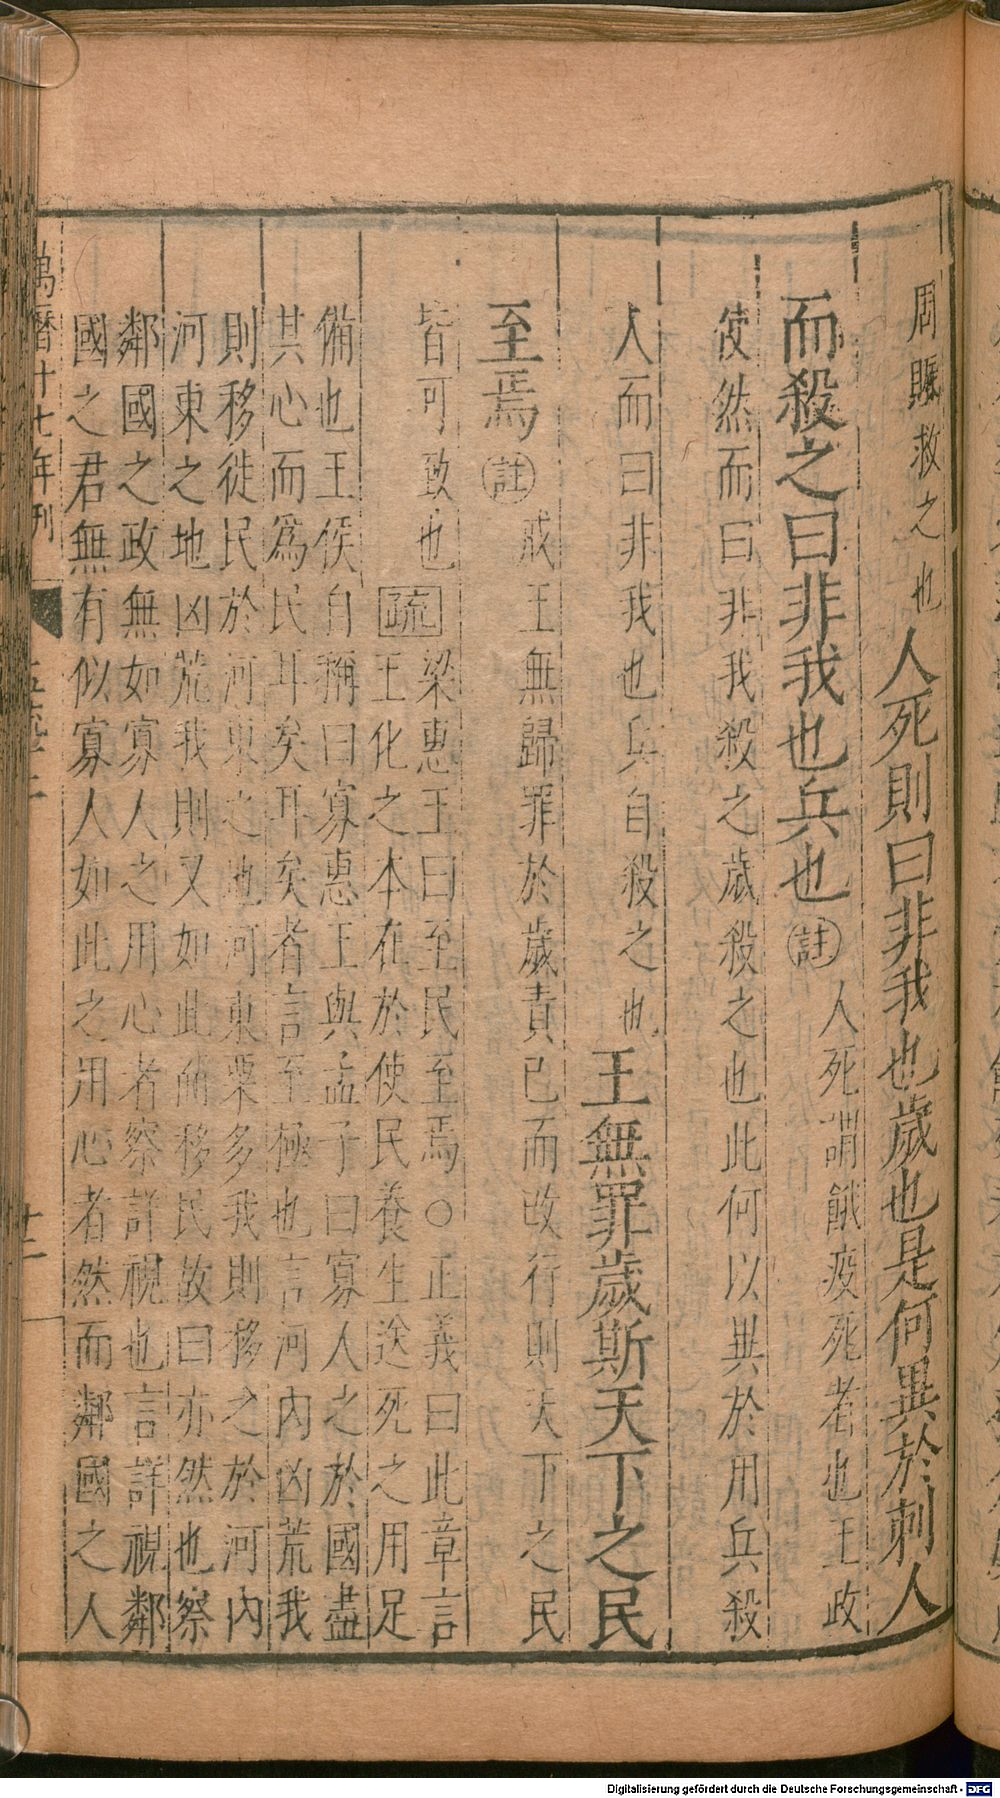 周賑救之也人死則曰非我也歲也是何異於刺人
而殺之曰非我也兵也註人死謂餓疫死者也王政
使然而曰非我殺之歲殺之也此何以異於用兵殺
人而曰非我也兵自殺之也王無罪歲斯天下之民
至焉註戒王無歸罪於歲責己而改行則天下之民
皆可致也疏梁惠王曰至民至焉○正義曰此章言
王化之本在於使民養生送死之用足
備也王侯自稱曰寡惠王與孟子曰寡人之於國盡
其心而為民耳矣耳矣者言至極也言河內凶荒我
則移徙民於河東之地河東粟多我則移之於河內
河東之地凶荒我則又如此而移民故曰亦然也察
鄰國之政無如寡人之用心者察詳視也言詳視鄰
國之君無有似寡人如此之用心者然而鄰國之人
萬曆十七年刊
十二
Digitalisierung gefördert durch die Deutsche Forschungsgemeinschaft - DFG